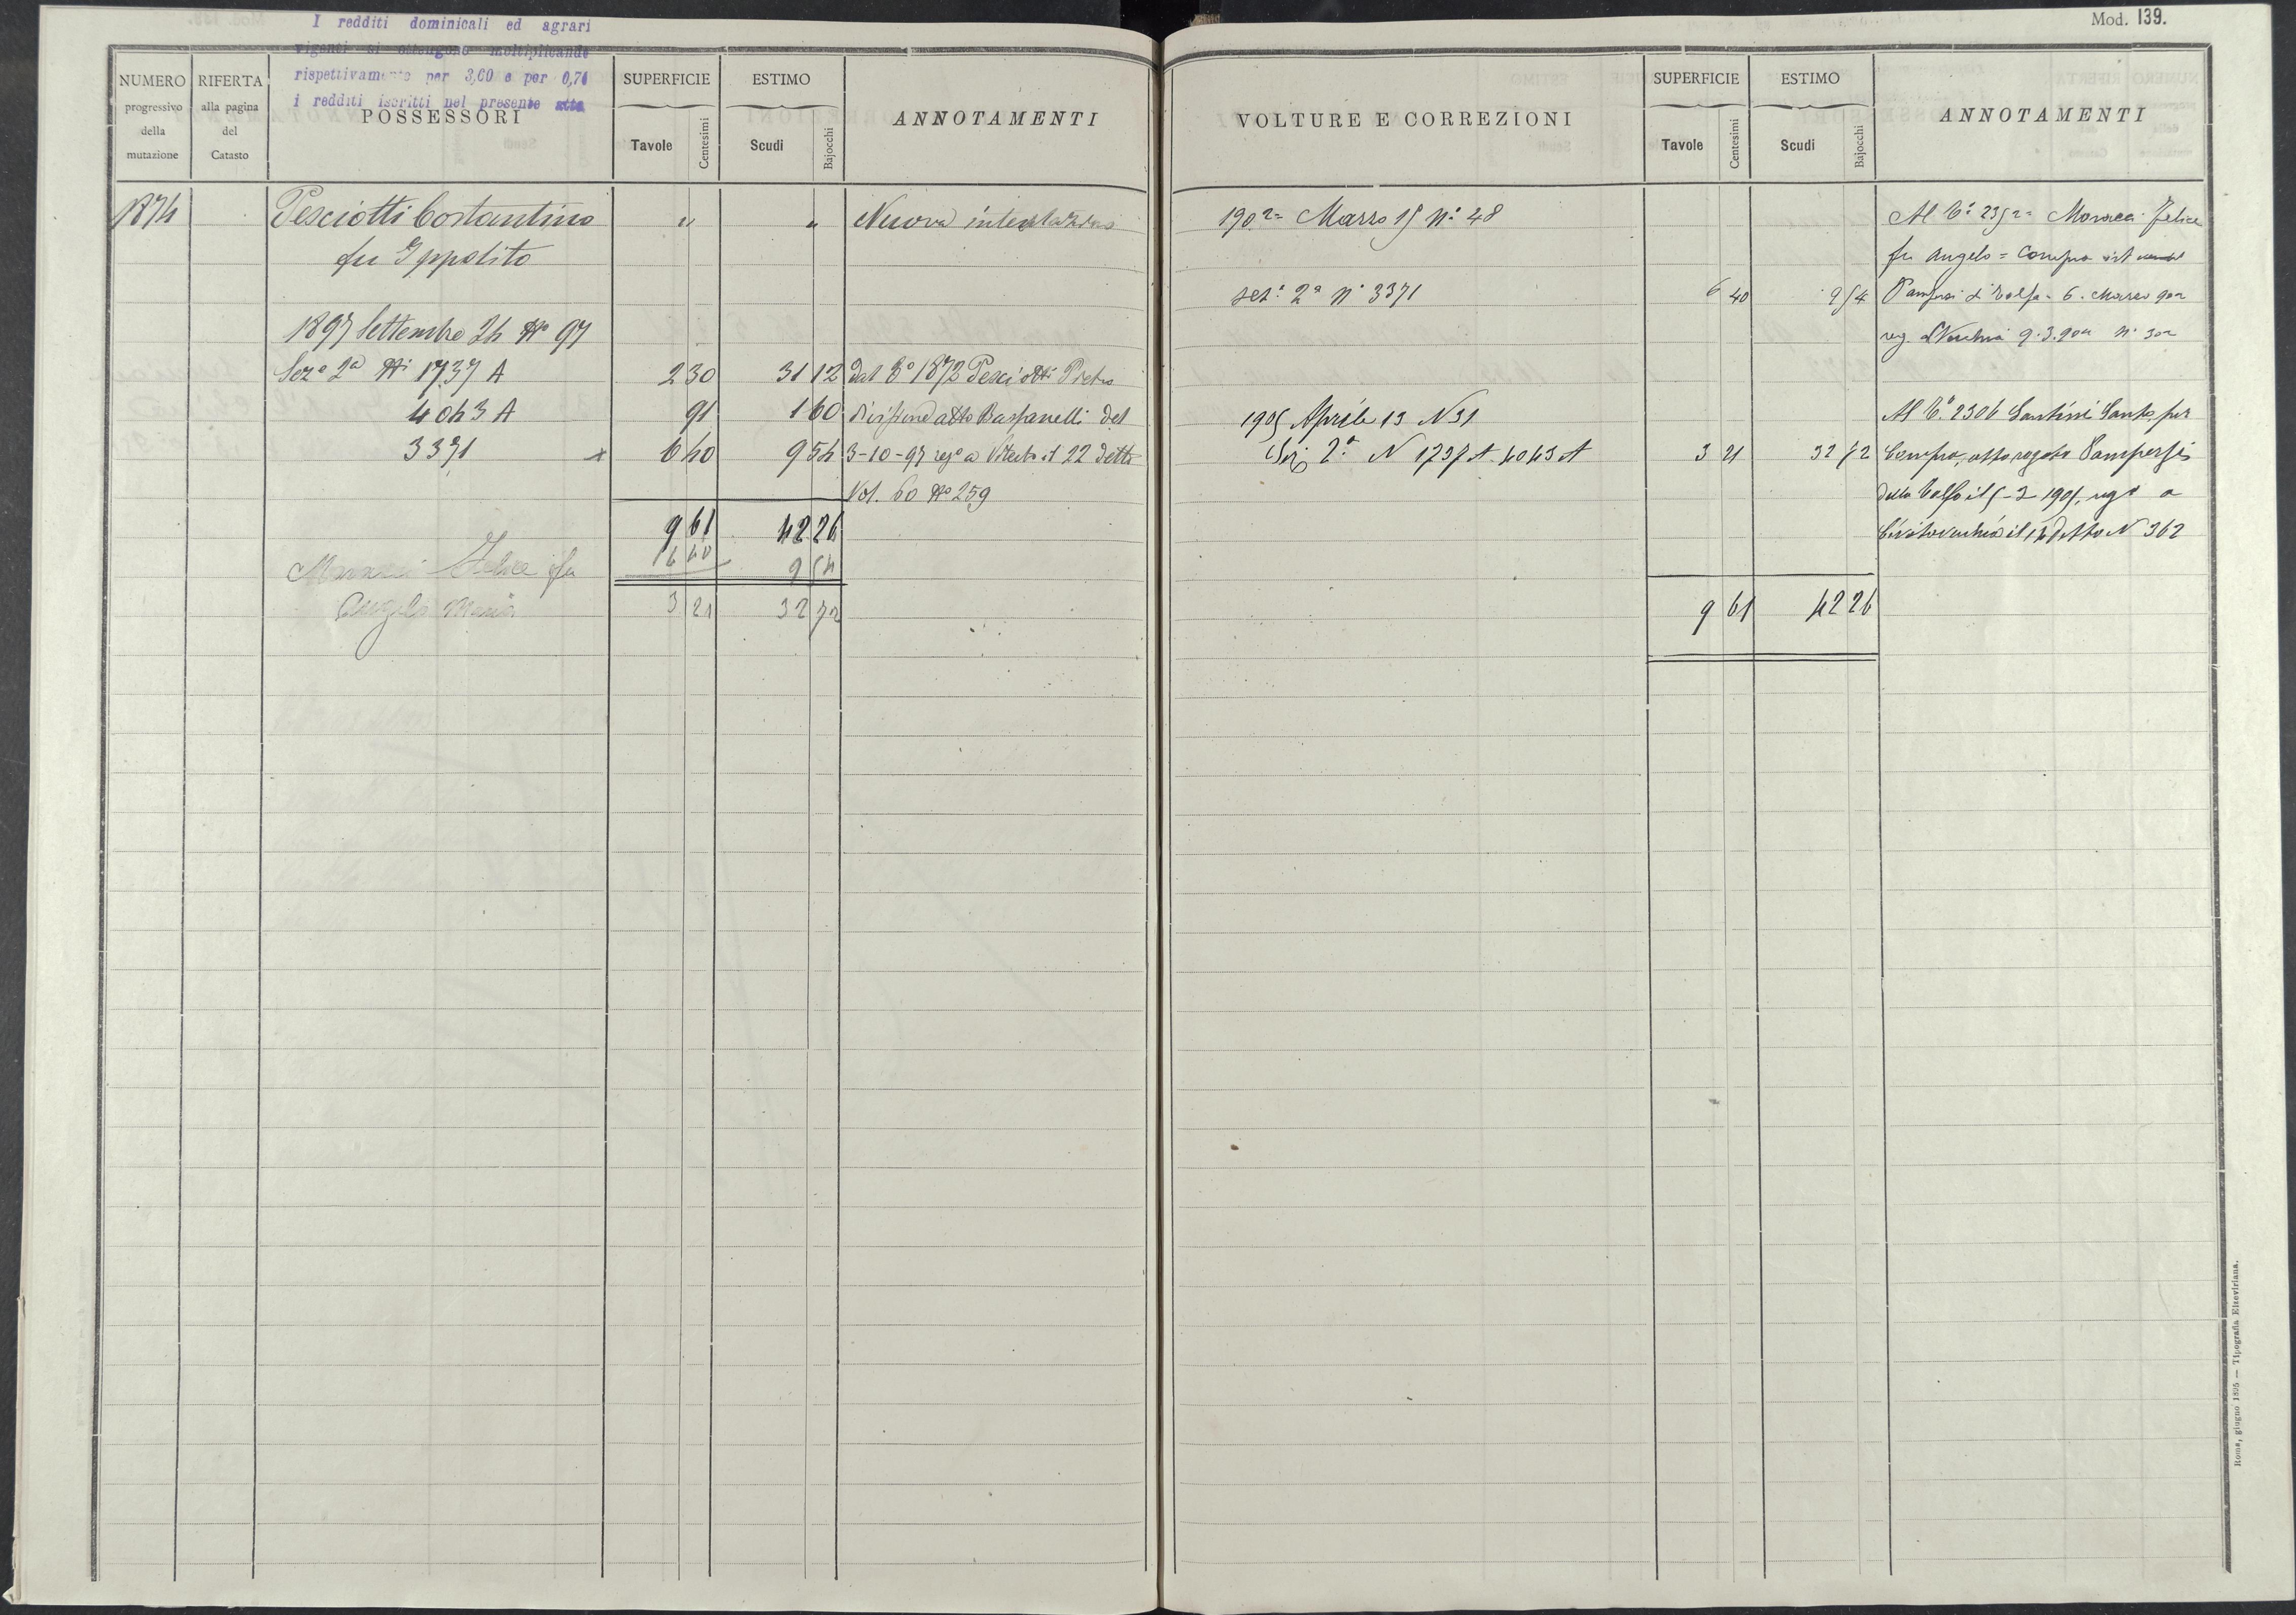 I redditi dominicali ed agrari
vigenti si ottengono moltiplicando
rispettivamente per 3,60 e per 0,71
i redditi iscritti nel presente atto
NUMERO progressivo della mutazione
RIFERTA alla pagina del Catasto
POSSESSORI
SUPERFICIE
Tavole Centesimi
ESTIMO
Scudi Bajocchi
ANNOTAMENTI
1874 Pesciotti Costantino " " Nuova intestazione
fu Ippolito
1897 Settembre 24 No 97
Sez.e 2a Ni 1737 A 2 30 31 12 Dal Co 1872 Pesciotti Pietro
4043 A 91 1 60 divisione atto del
3371 x 6 40 9 54 3-10-97 rego a Viterbo il 22 detto
Vol. 60 No 259
9 61 42 26
6 40 9 54
Maracci Felice fu
Angelo Maria 3 21 32 72
Mod. 139.
VOLTURE E CORREZIONI
SUPERFICIE
Tavole Centesimi
ESTIMO
Scudi Bajocchi
ANNOTAMENTI
1902= Marzo 15 No 48 Al Co 2352= Maracci Felice
fu Angelo = Compra
sez: 2a No 3371 6 40 9 54 di Tolfa - 6. Marzo 902
reg. CVecchia 9.3.902 No 302
1905 Aprile 13 N 31 Al Co 2306 Santini Santo per
Sez 2a N 1737 A 4043 A 3 21 32 72 Compra, atto rogato
della Tolfa il 5-2 1905, rego a
Civitavecchia il 14 detto N 362
9 61 42 26
Roma, giugno 1895 — Tipografia Elzeviriana.